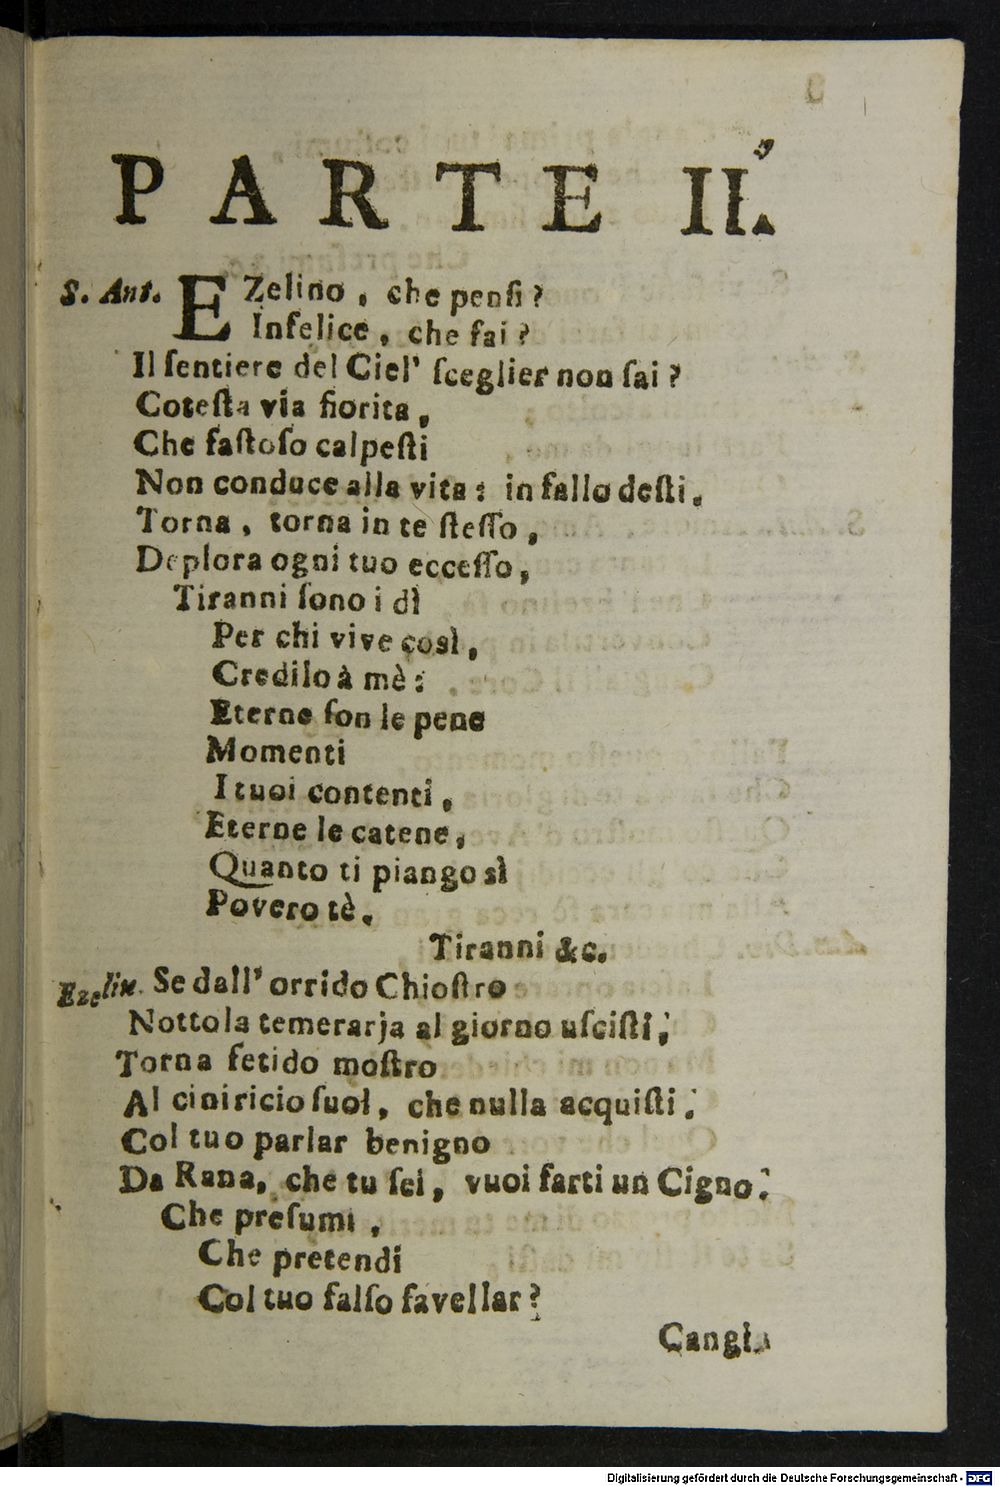 PARTE II.
S. Ant. EZelino, che penſi?
Infelice, che fai?
Il ſentiere del Ciel' ſceglier non ſai?
Coteſta via fiorita,
Che faſtoſo calpeſti
Non conduce alla vita: in fallo deſti.
Torna, torna in te ſteſſo,
Deplora ogni tuo ecceſſo,
Tiranni ſono i dì
Per chi vive così,
Credilo à mè:
Eterne ſon le pene
Momenti
I tuoi contenti,
Eterne le catene,
Quanto ti piango sì
Povero tè.
Tiranni &c.
Ezelin. Se dall' orrido Chioſtro
Nottola temerarja al giorno uſciſti;
Torna fetido moſtro
Al ciniricio ſuol, che nulla acquiſti:
Col tuo parlar benigno
Da Rana, che tu ſei, vuoi farti un Cigno:
Che preſumi,
Che pretendi
Col tuo falſo favellar?
Cangia
Digitalisierung gefördert durch die Deutsche Forschungsgemeinschaft - DFG